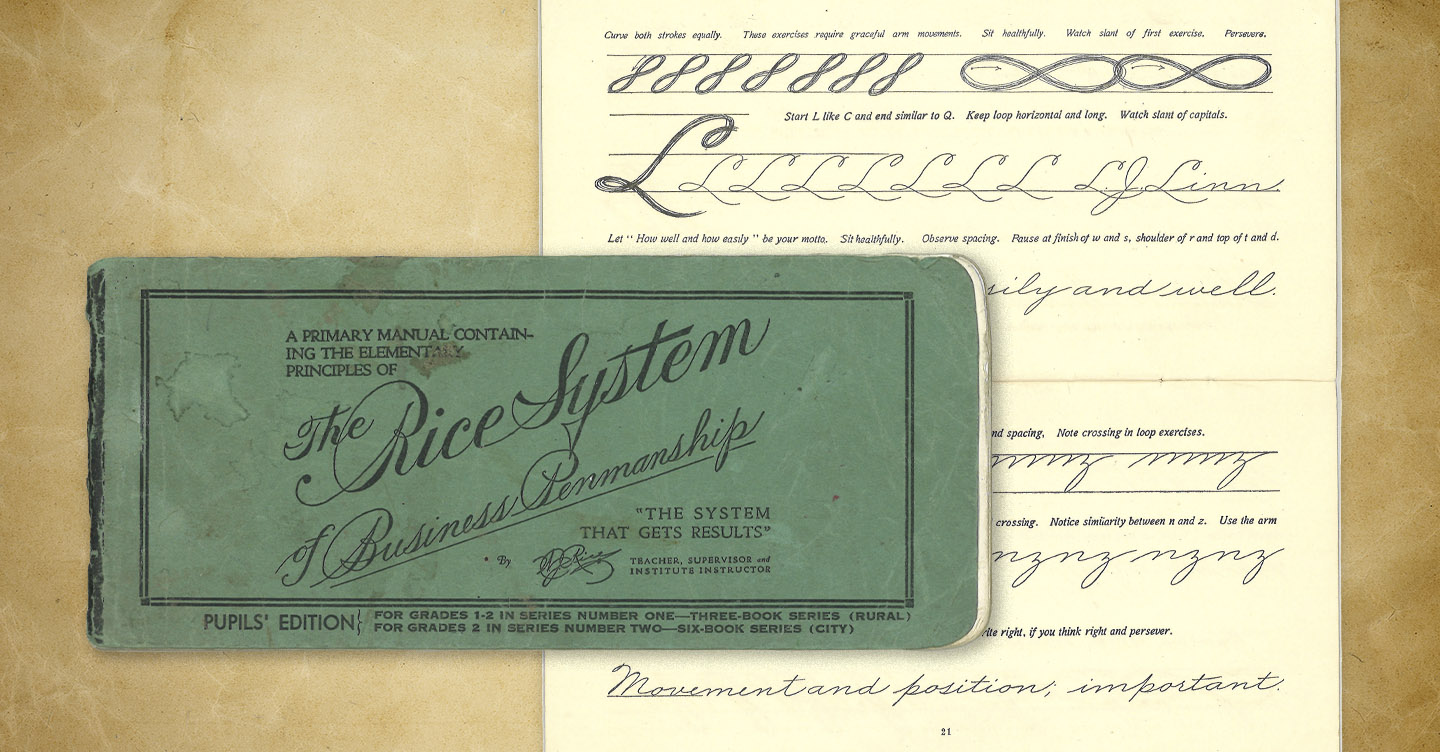 Curve both strokes equally. These exercises require graceful arm movements. Sit healthfully. Watch slant of first exercise. Persevere.
Start L like C and end similar to Q. Keep loop horizontal and long. Watch slant of capitals.
L L L L L L L L L L. J. Linn.
Let "How well and how easily" be your motto. Sit healthfully. Observe spacing. Pause at finish of w and s, shoulder of r and top of t and d.
sily and well.
nd spacing, Note crossing in loop exercises.
crossing. Notice similarity between n and z. Use the arm
nznz nznz
rite right, if you think right and persever.
Movement and position; important.
21
A PRIMARY MANUAL CONTAIN-
ING THE ELEMENTARY
PRINCIPLES OF
The Rice System
of Business Penmanship
"THE SYSTEM
THAT GETS RESULTS"
By Rice TEACHER, SUPERVISOR and
INSTITUTE INSTRUCTOR
PUPILS' EDITION { FOR GRADES 1-2 IN SERIES NUMBER ONE—THREE-BOOK SERIES (RURAL)
FOR GRADES 2 IN SERIES NUMBER TWO—SIX-BOOK SERIES (CITY)